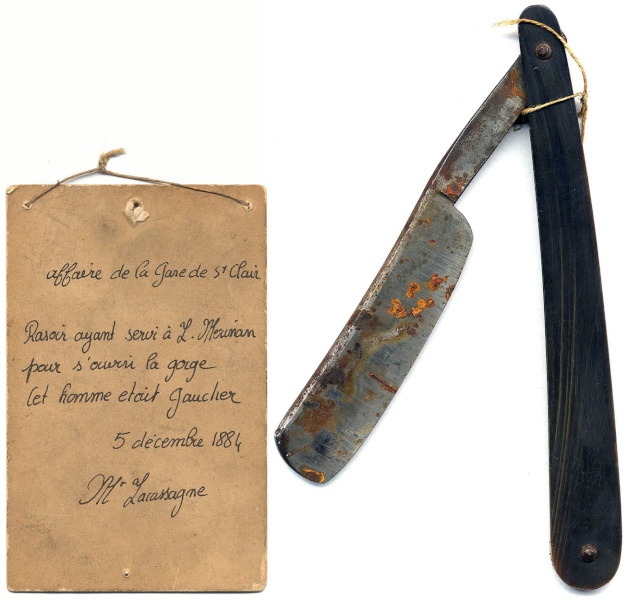 affaire de la Gare de St Clair
Rasoir ayant servi à L. Mounan
pour s'ouvrir la gorge
Cet homme etait Gaucher
5 décembre 1884
Mr Lacassagne